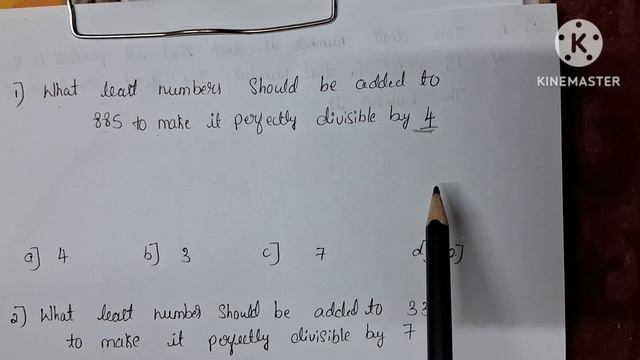 K
KINEMASTER
1) What least numbers should be added to
885 to make it perfectly divisible by 4
a] 4 b] 3 c] 7 d]
2) What least number should be added to
to make it perfectly divisible by 7